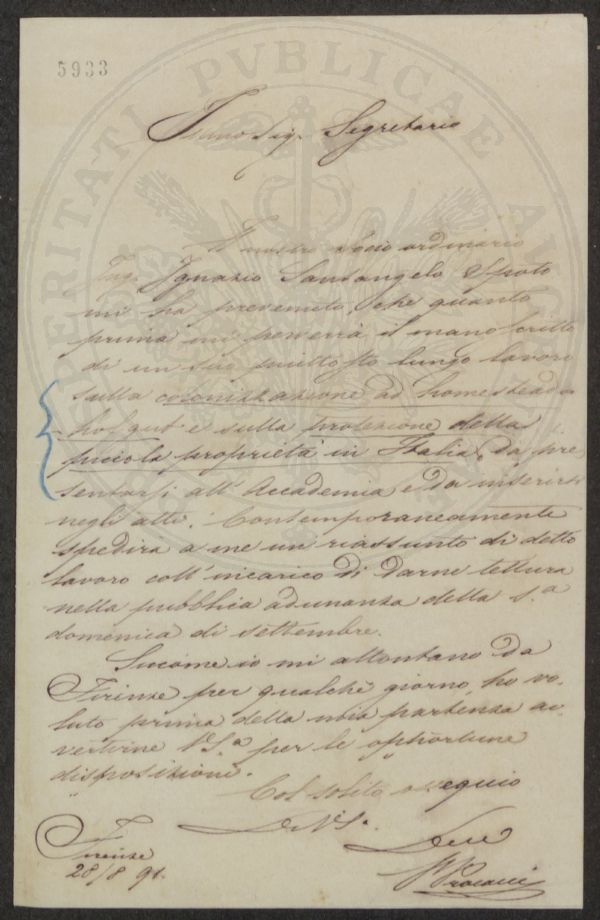 5933
Segretario
Il nostro Socio ordinario
Ing. Ignazio Santangelo Spoto
mi ha prevenuto, che quanto
prima mi perverrà il manoscritto
di un suo piuttosto lungo lavoro
sulla colonizzazione ad homestead o
hofgut e sulla protezione della
piccola proprietà in Italia, da pre-
sentarsi all'Accademia e da inserirsi
negli atti. Contemporaneamente
spedirà a me un riassunto di detto
lavoro coll'incarico di darne lettura
nella pubblica adunanza della 1.a
domenica di settembre.
Siccome io mi allontano da
Firenze per qualche giorno, ho vo-
luto prima della mia partenza av-
vertirne V.S.a per le opportune
disposizioni.
Col solito ossequio
Di V.S.
Firenze
28/8 91.